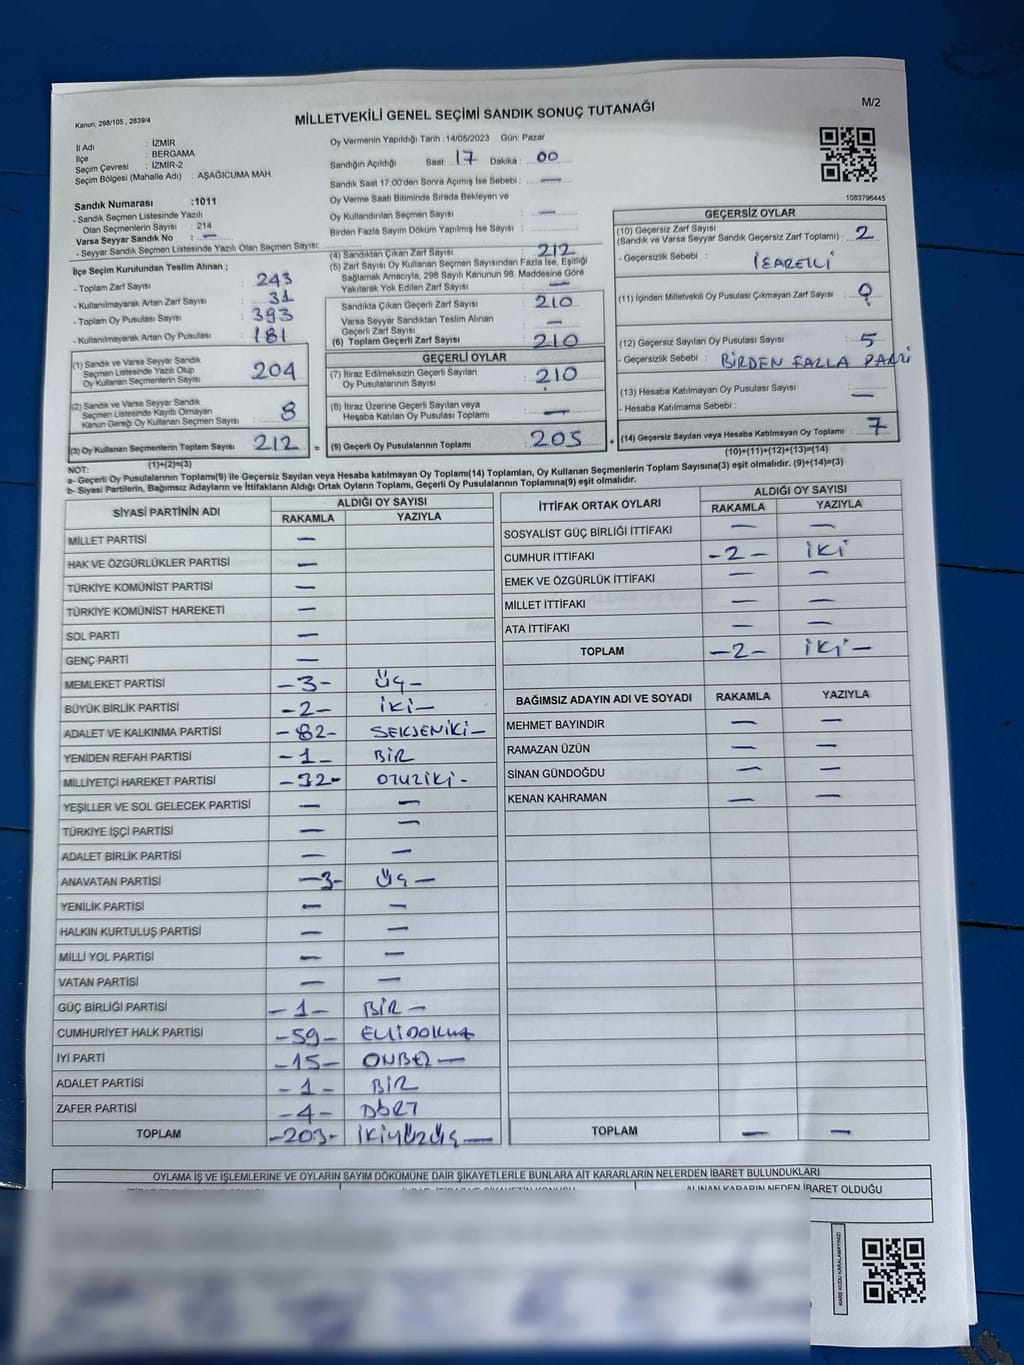 M/2
Kanun, 298/105 , 2839/4
MİLLETVEKİLİ GENEL SEÇİMİ SANDIK SONUÇ TUTANAĞI
İl Adı : İZMİR
İlçe : BERGAMA
Seçim Çevresi : İZMİR-2
Seçim Bölgesi (Mahalle Adı) : AŞAĞICUMA MAH.
Oy Vermenin Yapıldığı Tarih :14/05/2023 Gün: Pazar
Sandığın Açıldığı Saat: 17 Dakika : 00
Sandık Saat 17.00'den Sonra Açılmış İse Sebebi : —
Oy Verme Saati Bitiminde Sırada Bekleyen ve
Oy Kullandırılan Seçmen Sayısı : —
Birden Fazla Sayım Döküm Yapılmış İse Sebebi : —
1083796445
Sandık Numarası :1011
- Sandık Seçmen Listesinde Yazılı
Olan Seçmenlerin Sayısı : 214
Varsa Seyyar Sandık No : —
- Seyyar Sandık Seçmen Listesinde Yazılı Olan Seçmen Sayısı:
İlçe Seçim Kurulundan Teslim Alınan ;
- Toplam Zarf Sayısı : 243
- Kullanılmayarak Artan Zarf Sayısı : 31
- Toplam Oy Pusulası Sayısı : 393
- Kullanılmayarak Artan Oy Pusulası : 181
(1) Sandık ve Varsa Seyyar Sandık
Seçmen Listesinde Yazılı Olup
Oy Kullanan Seçmenlerin Sayısı : 204
(2) Sandık ve Varsa Seyyar Sandık
Seçmen Listesinde Kayıtlı Olmayan
Kanun Gereği Oy Kullanan Seçmen Sayısı : 8
(3) Oy Kullanan Seçmenlerin Toplam Sayısı : 212 =
(1)+(2)=(3)
(4) Sandıktan Çıkan Zarf Sayısı : 212
(5) Zarf Sayısı Oy Kullanan Seçmen Sayısından Fazla İse, Eşitliği
Sağlamak Amacıyla, 298 Sayılı Kanunun 98. Maddesine Göre
Yakılarak Yok Edilen Zarf Sayısı : —
Sandıkta Çıkan Geçerli Zarf Sayısı : 210
Varsa Seyyar Sandıktan Teslim Alınan
Geçerli Zarf Sayısı : —
(6) Toplam Geçerli Zarf Sayısı : 210
GEÇERLİ OYLAR
(7) İtiraz Edilmeksizin Geçerli Sayılan
Oy Pusulalarının Sayısı : 210
(8) İtiraz Üzerine Geçerli Sayılan veya
Hesaba Katılan Oy Pusulası Toplamı : —
(9) Geçerli Oy Pusulalarının Toplamı : 205 +
GEÇERSİZ OYLAR
(10) Geçersiz Zarf Sayısı
(Sandık ve Varsa Seyyar Sandık Geçersiz Zarf Toplamı) : 2
- Geçersizlik Sebebi : İŞARETLİ
(11) İçinden Milletvekili Oy Pusulası Çıkmayan Zarf Sayısı :
(12) Geçersiz Sayılan Oy Pusulası Sayısı : 5
- Geçersizlik Sebebi : BİRDEN FAZLA PARTİ
(13) Hesaba Katılmayan Oy Pusulası Sayısı : —
- Hesaba Katılmama Sebebi :
(14) Geçersiz Sayılan veya Hesaba Katılmayan Oy Toplamı : 7
(10)+(11)+(12)+(13)=(14)
NOT:
a- Geçerli Oy Pusulalarının Toplamı(9) ile Geçersiz Sayılan veya Hesaba katılmayan Oy Toplamı(14) Toplamları, Oy Kullanan Seçmenlerin Toplam Sayısına(3) eşit olmalıdır. (9)+(14)=(3)
b- Siyasi Partilerin, Bağımsız Adayların ve İttifakların Aldığı Ortak Oyların Toplamı, Geçerli Oy Pusulalarının Toplamına(9) eşit olmalıdır.
SİYASİ PARTİNİN ADI ALDIĞI OY SAYISI
RAKAMLA YAZIYLA
MİLLET PARTİSİ —
HAK VE ÖZGÜRLÜKLER PARTİSİ —
TÜRKİYE KOMÜNİST PARTİSİ —
TÜRKİYE KOMÜNİST HAREKETİ —
SOL PARTİ —
GENÇ PARTİ —
MEMLEKET PARTİSİ —3— ÜÇ—
BÜYÜK BİRLİK PARTİSİ —2— İKİ—
ADALET VE KALKINMA PARTİSİ —82— SEKSENİKİ—
YENİDEN REFAH PARTİSİ —1— BİR
MİLLİYETÇİ HAREKET PARTİSİ —32— OTUZİKİ-
YEŞİLLER VE SOL GELECEK PARTİSİ — —
TÜRKİYE İŞÇİ PARTİSİ — —
ADALET BİRLİK PARTİSİ — —
ANAVATAN PARTİSİ —3— ÜÇ—
YENİLİK PARTİSİ — —
HALKIN KURTULUŞ PARTİSİ — —
MİLLİ YOL PARTİSİ — —
VATAN PARTİSİ — —
GÜÇ BİRLİĞİ PARTİSİ —1— BİR—
CUMHURİYET HALK PARTİSİ —59— ELLİDOKUZ
İYİ PARTİ —15— ONBEŞ—
ADALET PARTİSİ —1— BİR
ZAFER PARTİSİ —4— DÖRT
TOPLAM —203— İKİYÜZÜÇ—
İTTİFAK ORTAK OYLARI ALDIĞI OY SAYISI
RAKAMLA YAZIYLA
SOSYALİST GÜÇ BİRLİĞİ İTTİFAKI — —
CUMHUR İTTİFAKI —2— İKİ
EMEK VE ÖZGÜRLÜK İTTİFAKI — —
MİLLET İTTİFAKI — —
ATA İTTİFAKI — —
TOPLAM —2— İKİ—
BAĞIMSIZ ADAYIN ADI VE SOYADI RAKAMLA YAZIYLA
MEHMET BAYINDIR — —
RAMAZAN ÜZÜN — —
SİNAN GÜNDOĞDU — —
KENAN KAHRAMAN — —
TOPLAM — —
OYLAMA İŞ VE İŞLEMLERİNE VE OYLARIN SAYIM DÖKÜMÜNE DAİR ŞİKAYETLERLE BUNLARA AİT KARARLARIN NELERDEN İBARET BULUNDUKLARI
ALINAN KARARIN NEDEN İBARET OLDUĞU
KARE KODU KARALAMAYINIZ!